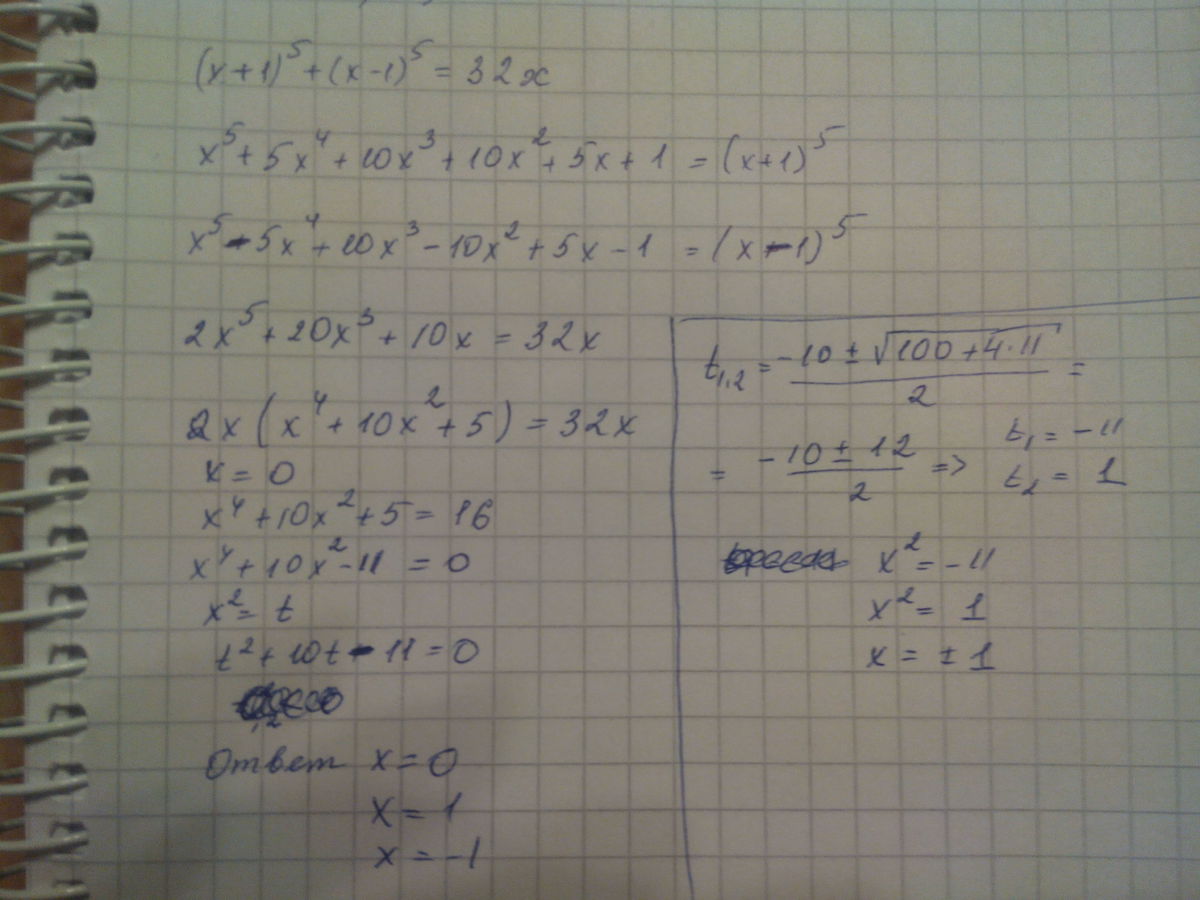 (x+1)⁵+(x-1)⁵=32x
x⁵+5x⁴+10x³+10x²+5x+1 = (x+1)⁵
x⁵-5x⁴+10x³-10x²+5x-1 = (x-1)⁵
2x⁵+20x³+10x=32x
2x(x⁴+10x²+5)=32x
x=0
x⁴+10x²+5=16
x⁴+10x²-11=0
x²=t
t²+10t-11=0
Ответ x=0
x=1
x=-1
t₁,₂ = (-10±√(100+4·11))/2 =
= (-10±12)/2 => t₁=-11
t₂=1
x²=-11
x²=1
x=±1